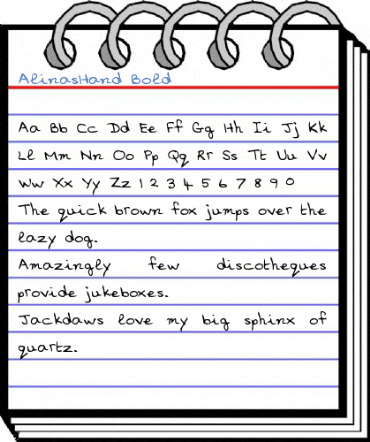 AlinasHand Bold
Aa Bb Cc Dd Ee Ff Gg Hh Ii Jj Kk
Ll Mm Nn Oo Pp Qq Rr Ss Tt Uu Vv
Ww Xx Yy Zz 1 2 3 4 5 6 7 8 9 0
The quick brown fox jumps over the
lazy dog.
Amazingly few discotheques
provide jukeboxes.
Jackdaws love my big sphinx of
quartz.